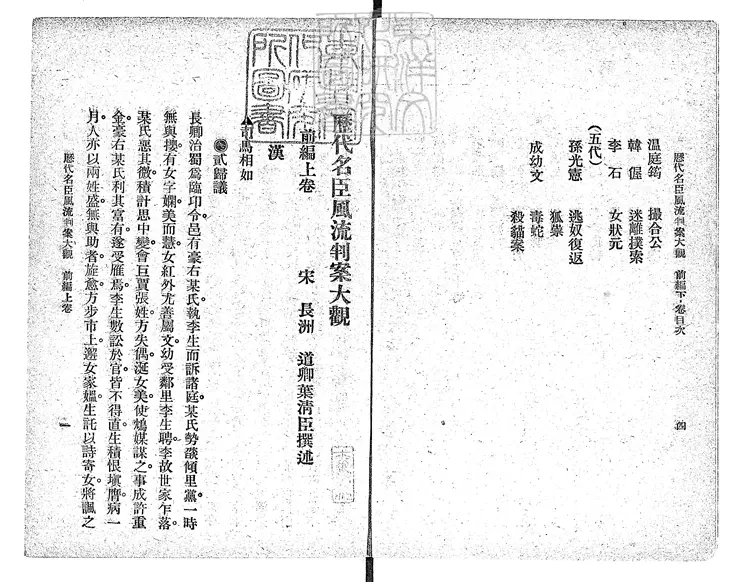 歷代名臣風流判案大觀　前編下・卷目次
溫庭筠　撮合公
韓偓　迷離撲索
李石　女狀元
（五代）
孫光憲　逃奴復返
狐祟
成幼文　毒蛇
殺貓案
四
歷代名臣風流判案大觀
前編上卷　宋　長洲　道卿葉清臣撰述
漢
▲司馬相如
貳歸議
長卿治蜀爲臨卭令邑有豪右某氏執李生而訴諸庭某氏勢燄傾里黨。一時
無與攖。有女字嫻美而慧女紅外尤善屬文幼受鄰里李生聘。李故世家乍落。
某氏惡其微積計思中變會巨賈張姓方失偶。涎女美。使媒謀之事成許重
金。豪右某氏利其富有遂受雁焉李生數訟於官皆不得直生積恨塡膺病一
月。人亦以兩姓盛無與助者。旋愈方步市上。邂女家媼生託以詩寄女將諷之
歷代名臣風流判案大觀　前編上卷
一